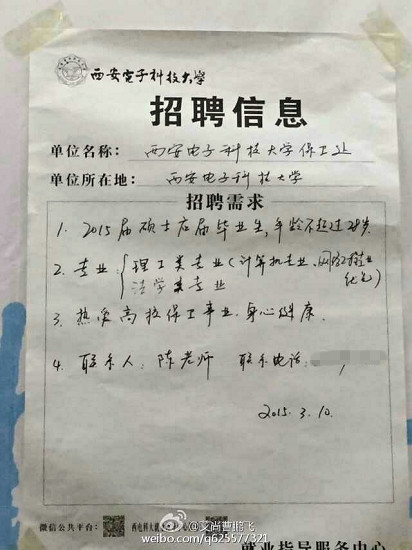 西安电子科技大学
招聘信息
单位名称: 西安电子科技大学保卫处
单位所在地: 西安电子科技大学
招聘需求
1. 2015届硕士应届毕业生,年龄不超过28岁
2. 专业: 理工类专业(计算机专业、网络工程专业
优先)
法学类专业
3. 热爱高校保卫事业,身心健康.
4. 联系人: 陈老师 联系电话:
2015.3.10.
微信公共平台:
@艾尚曹鹏飞
weibo.com/q625577321
就业指导服务中心